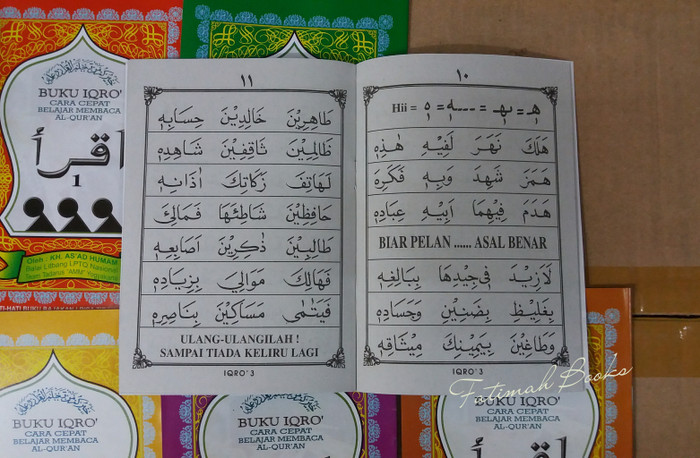 BUKU IQRO'
CARA CEPAT
BELAJAR MEMBACA
AL-QUR'AN
اقرأ
1
Oleh : KH. AS'AD HUMAM
Balai Litbang LPTQ Nasional
Team Tadarus "AMM" Yogyakarta
١٠
Hii = هٖ = ـهٖـ = ـهٖ = هٖ
هَلَكَ نَهَرَ لَفِيْهِ هٰذِهٖ
هَمَزَ شَهِدَ وَبِهٖ فَكَرِهَ
هَدَمَ فِيْهِمَا اَبِيْهِ عِبَادِهٖ
BIAR PELAN ...... ASAL BENAR
لَازِيْدَ فِيْ جِيْدِهَا بِبَالِغِهٖ
بِغَلِيْظِ بِضَنِيْنِ وَحَسَادِهٖ
وَطَاغِيْنَ بِيَمِيْنِكَ مِيْثَاقِهٖ
IQRO' 3
١١
طَاهِرِيْنَ خَالِدِيْنَ حِسَابِهٖ
ظَالِمِيْنَ ثَاقِفِيْنَ شَاهِدِهٖ
لَهَاتِفَ زَكَاتِكَ اٰذَانِهٖ
حَافِظِيْنَ شَاطِئَهَا فَمَالِئَ
طَالِبِيْنَ ذٰكِرِيْنَ اَصَابِعِهٖ
فَهَالِكَ مَوَالِيَ بِزِيَادِهٖ
فَيَتٰمٰى مَسَاكِيْنَ بِنَاصِرِهٖ
ULANG-ULANGILAH !
SAMPAI TIADA KELIRU LAGI
IQRO' 3
BUKU IQRO'
CARA CEPAT
BELAJAR MEMBACA
AL-QUR'AN
BUKU IQRO'
CARA CEPAT
BELAJAR MEMBACA
AL-QUR'AN
BUKU IQRO'
CARA CEPAT
BELAJAR MEMBACA
AL-QUR'AN
Fatimah Books